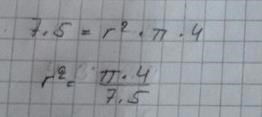 7.5 = r² · π · 4
r² = π · 4 / 7.5